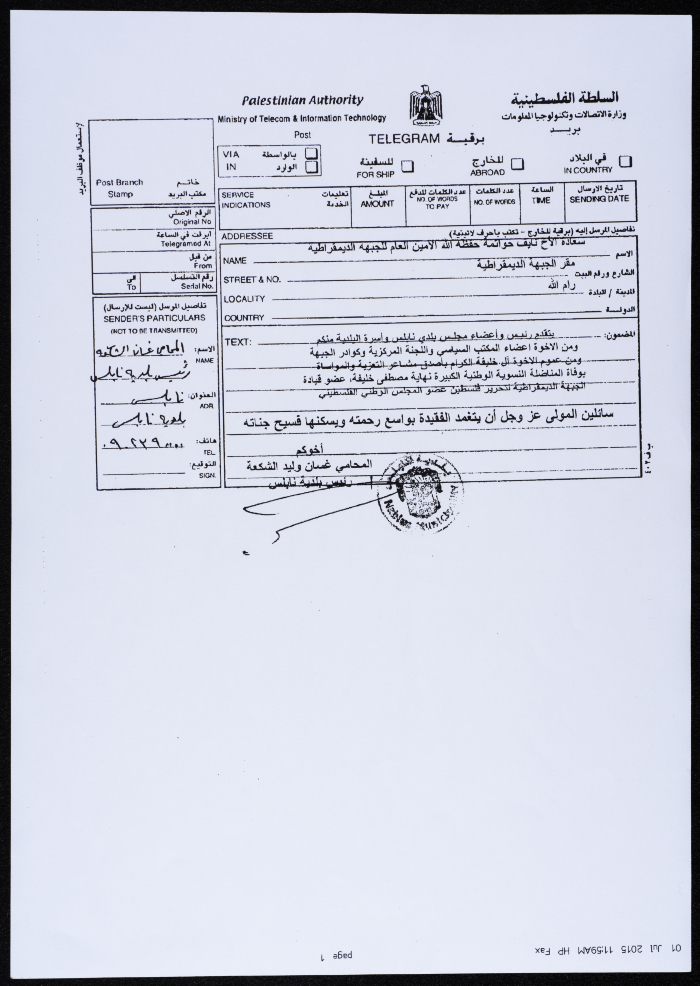 Palestinian Authority
السلطة الفلسطينية
Ministry of Telecom & Information Technology
وزارة الاتصالات وتكنولوجيا المعلومات
Post
بريد
TELEGRAM برقية
لإستعمال موظف البريد
VIA بالواسطة
IN الوارد
للسفينة
FOR SHIP
للخارج
ABROAD
في البلاد
IN COUNTRY
Post Branch خاتم
Stamp مكتب البريد
SERVICE INDICATIONS تعليمات الخدمة
المبلغ AMOUNT
عدد الكلمات للدفع NO. OF WORDS TO PAY
عدد الكلمات NO. OF WORDS
الساعة TIME
تاريخ الارسال SENDING DATE
الرقم الاصلي
Original No
أبرقت في الساعة
Telegramed At
من قبل
From
رقم التسلسل
Serial No.
في
To
ADDRESSEE تفاصيل المرسل إليه (برقية للخارج - تكتب بأحرف لاتينية)
سعادة الأخ نايف حواتمة حفظه الله الأمين العام للجبهة الديمقراطية
NAME الاسم
مقر الجبهة الديمقراطية
STREET & NO. الشارع ورقم البيت
رام الله
LOCALITY المدينة / البلدة
COUNTRY الدولة
تفاصيل المرسل (ليست للإرسال)
SENDER'S PARTICULARS
(NOT TO BE TRANSMITTED)
الاسم: المحامي غسان الشكعة
NAME
رئيس بلدية نابلس
العنوان: نابلس
ADR.
بلدية نابلس
هاتف:
TEL.
التوقيع:
SIGN.
TEXT: المضمون:
يتقدم رئيس وأعضاء مجلس بلدي نابلس وأسرة البلدية منكم
ومن الاخوة اعضاء المكتب السياسي واللجنة المركزية وكوادر الجبهة
ومن عموم الاخوة آل خليفة الكرام بأصدق مشاعر التعزية والمواساة
بوفاة المناضلة النسوية الوطنية الكبيرة نهاية مصطفى خليفة، عضو قيادة
الجبهة الديمقراطية لتحرير فلسطين عضو المجلس الوطني الفلسطيني
سائلين المولى عز وجل أن يتغمد الفقيدة بواسع رحمته ويسكنها فسيح جناته
أخوكم
المحامي غسان وليد الشكعة
رئيس بلدية نابلس
بلدية نابلس
Nablus Municipality
01 Jul 2015 11:59AM HP Fax
page 1